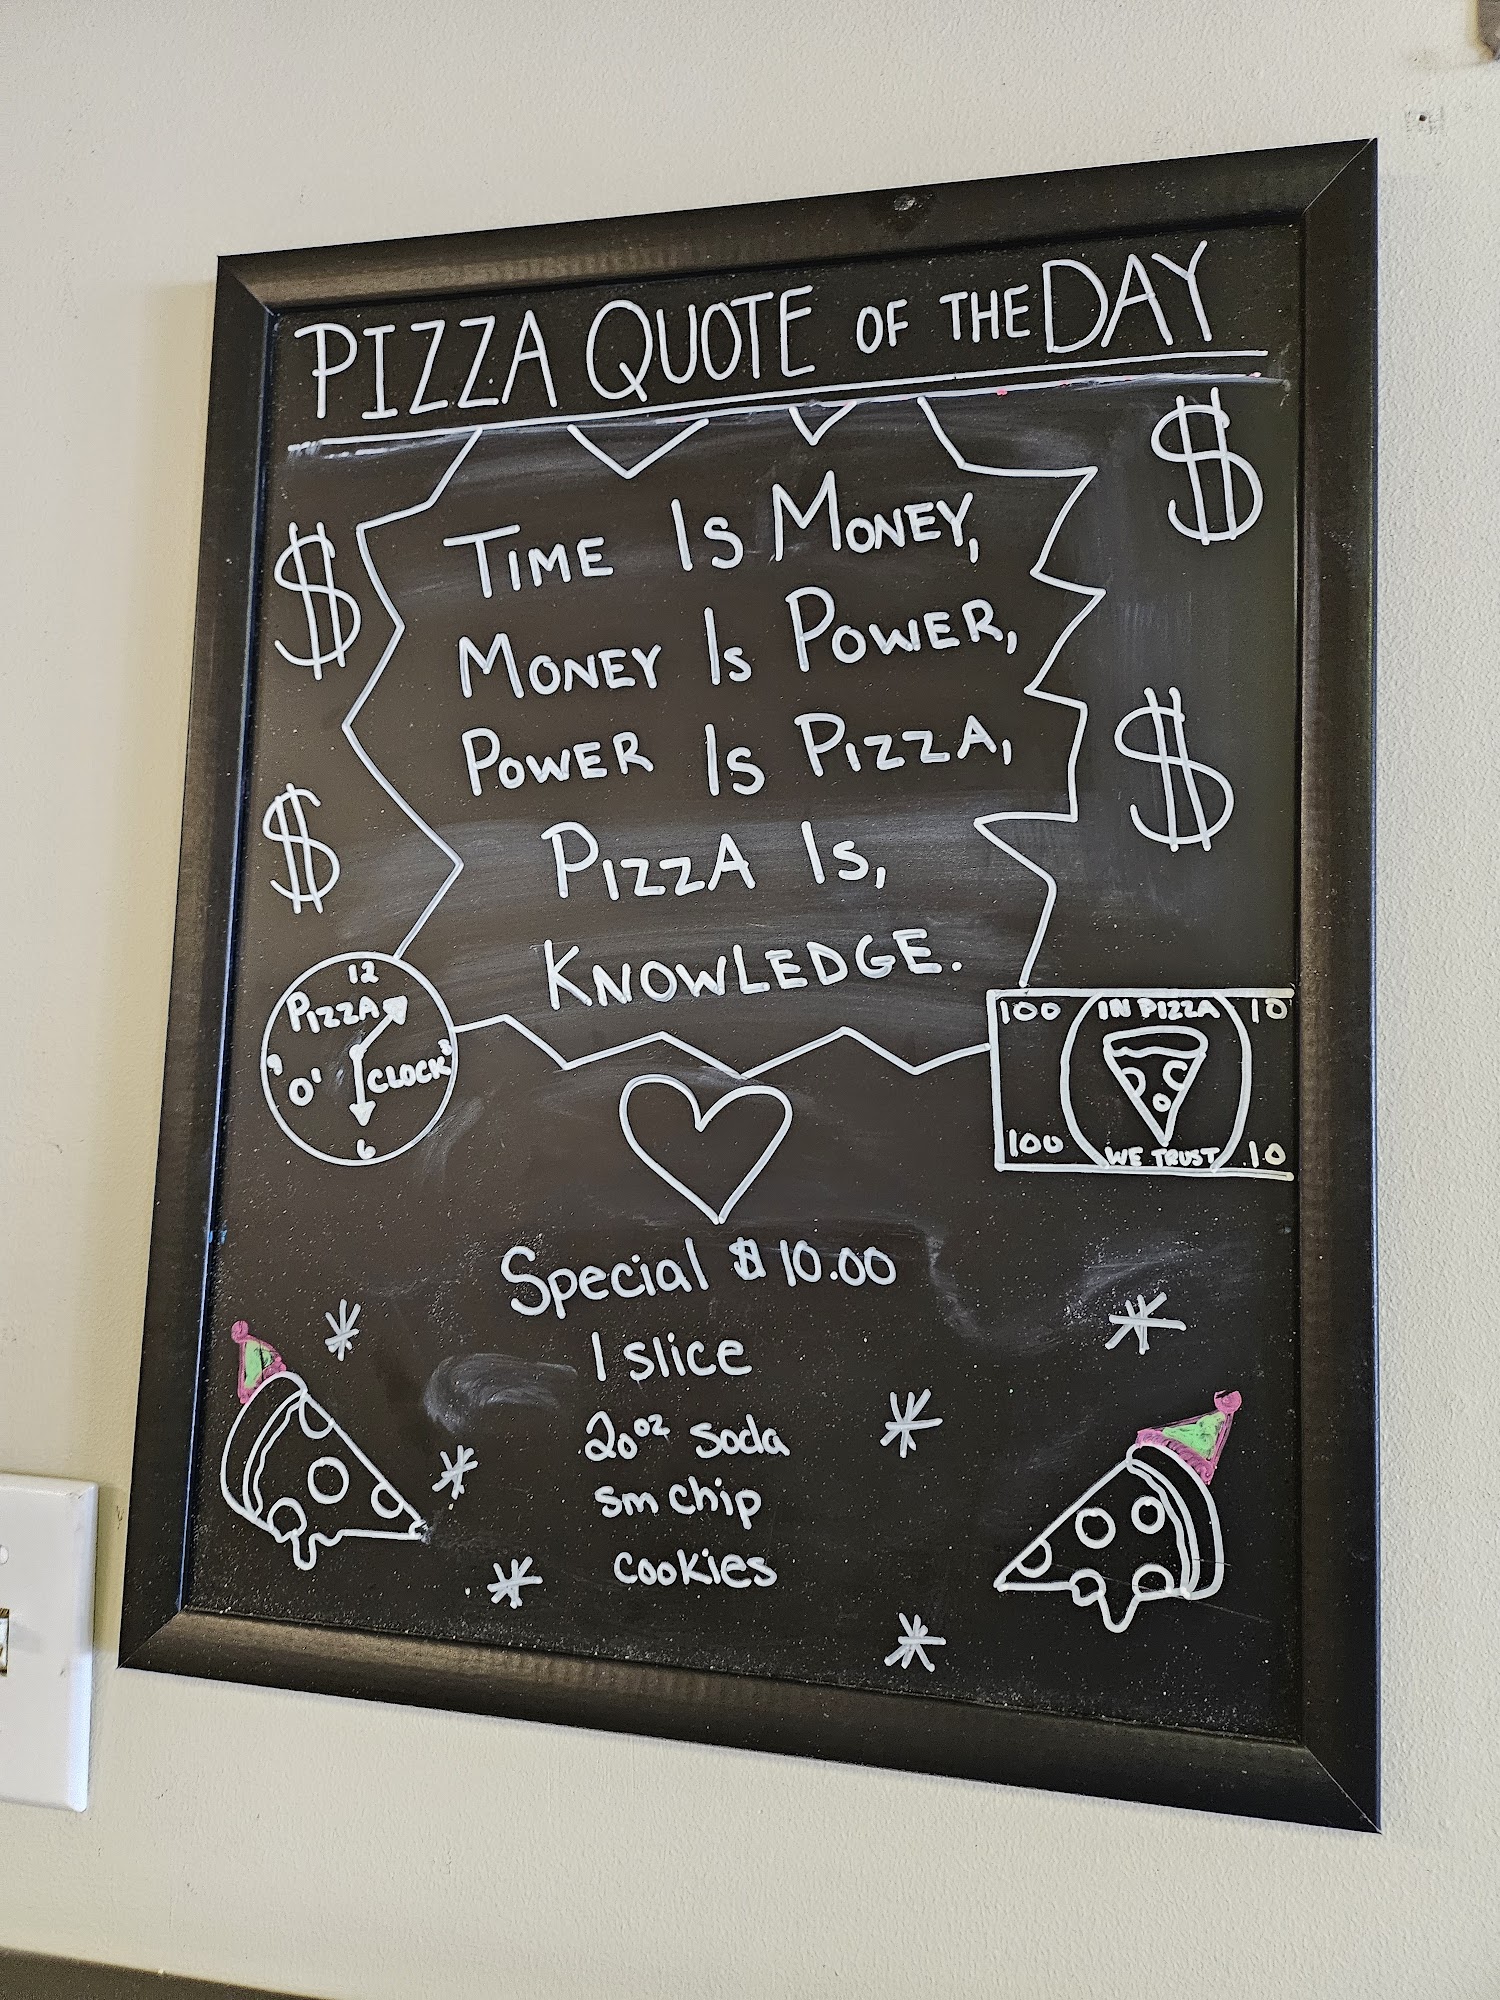 PIZZA QUOTE OF THE DAY
TIME IS MONEY,
MONEY IS POWER,
POWER IS PIZZA,
PIZZA IS,
KNOWLEDGE.
$
$
$
$
12
PIZZA
9 O' CLOCK 3
6
100 IN PIZZA 10
100 WE TRUST 10
Special $10.00
1 slice
20oz soda
sm chip
cookies